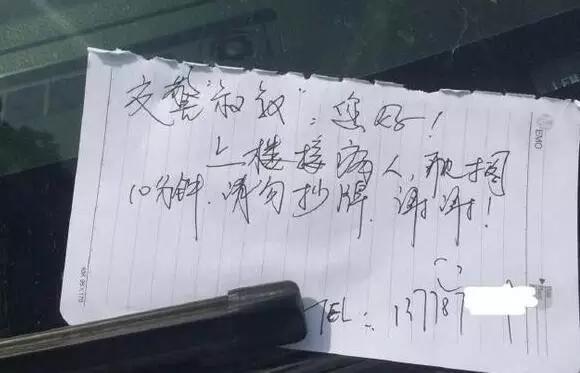 交警"叔叔":您好!
上楼接病人,耽搁
10分钟.请勿抄牌.谢谢!
TEL: 13787
EMO